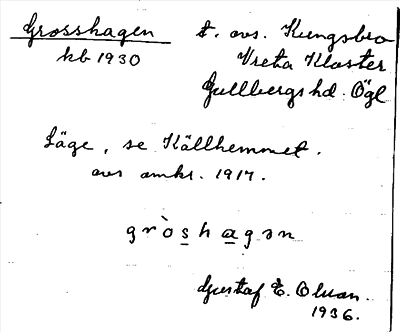 Grosshagen
kb 1930
t. avs. Kungsbro
Vreta Kloster
Gullbergs hd. Ögl
Läge, se Källhemmet.
avs omkr. 1917.
gròshagən
Gustaf E. Olson.
1936.